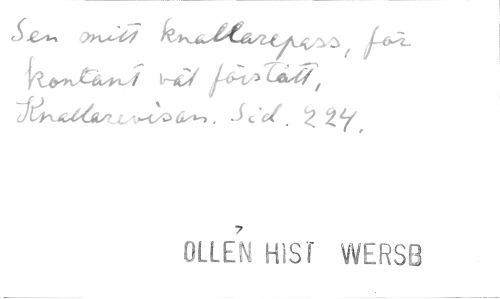 Sen mitt knallarepass, för
kontant väl förstått,
Knallarevisan. Sid. 224.
OLLÉN HIST WERSB